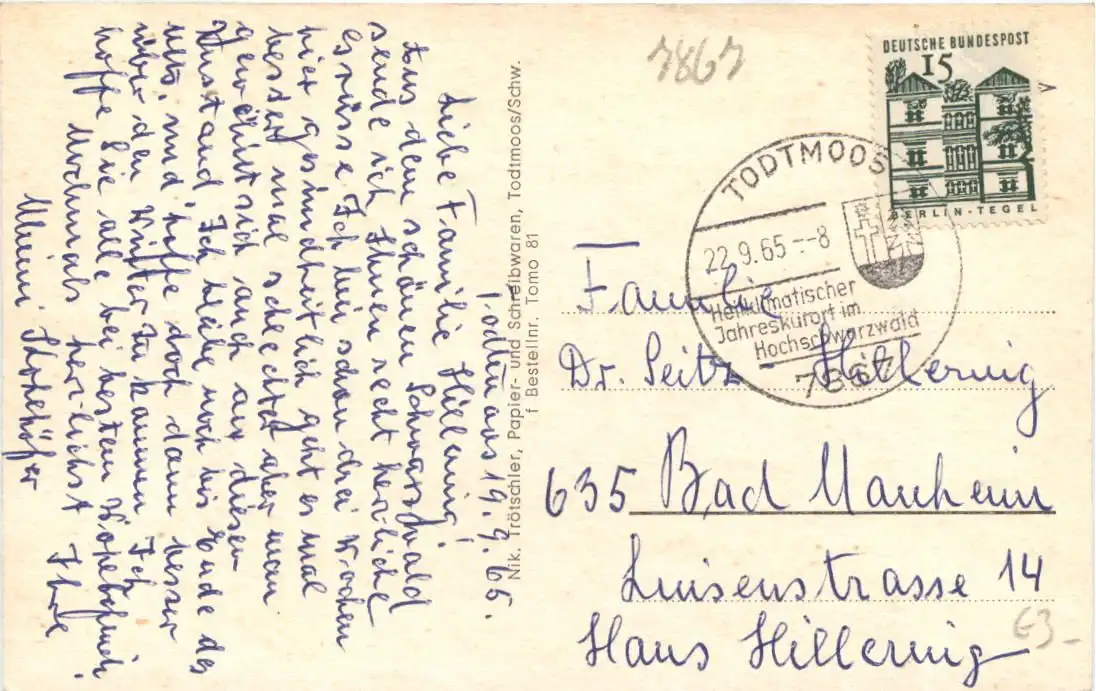 Todtmoos 19.9.65.
Liebe Familie Hillernig!
Aus dem schönen Schwarzwald
sende ich Ihnen recht herzliche
Grüsse. Ich bin schon drei Wochen
hier gesundheitlich geht es mal
besser mal schlechter aber man
gewöhnt sich auch an diesen
Zustand. Ich bleibe noch bis Ende des
Mts. und hoffe doch dann besser
über den Winter zu kommen. Ich
hoffe Sie alle bei bestem Wohlbefinden.
Nochmals herzlichst Ihre
Minni
Nik. Trötschler, Papier- und Schreibwaren, Todtmoos/Schw.
f Bestellnr. Tomo 81
7867
DEUTSCHE BUNDESPOST
15
BERLIN-TEGEL
TODTMOOS
22.9.65 --8
Heilklimatischer
Jahreskurort im
Hochschwarzwald
7867
Familie
Dr. Seitz Hillernig
635 Bad Nauheim
Luisenstrasse 14
Haus Hillernig
€3-